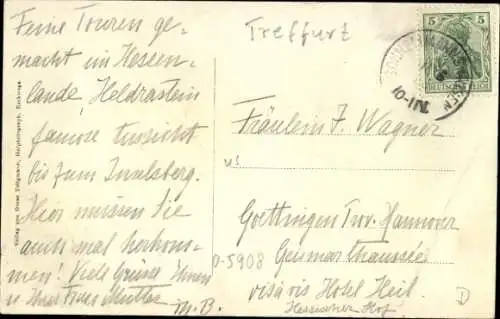 Feine Touren ge-
macht im Hessen-
lande, Heldrastein
famose Aussicht
bis zum Inselsberg.
Hier müssen Sie
auch mal herkom-
men! Viele Grüsse Ihnen
u Ihrer Frau Mutter
M. B.
Treffurt
5 5
DEUTSCHES REICH
10-11
Fräulein J. Wagner
u!
Goettingen Prov. Hannover
Geismar Chaussée
vis à vis Hotel Heil.
Hessischer Hof
0-5908
D